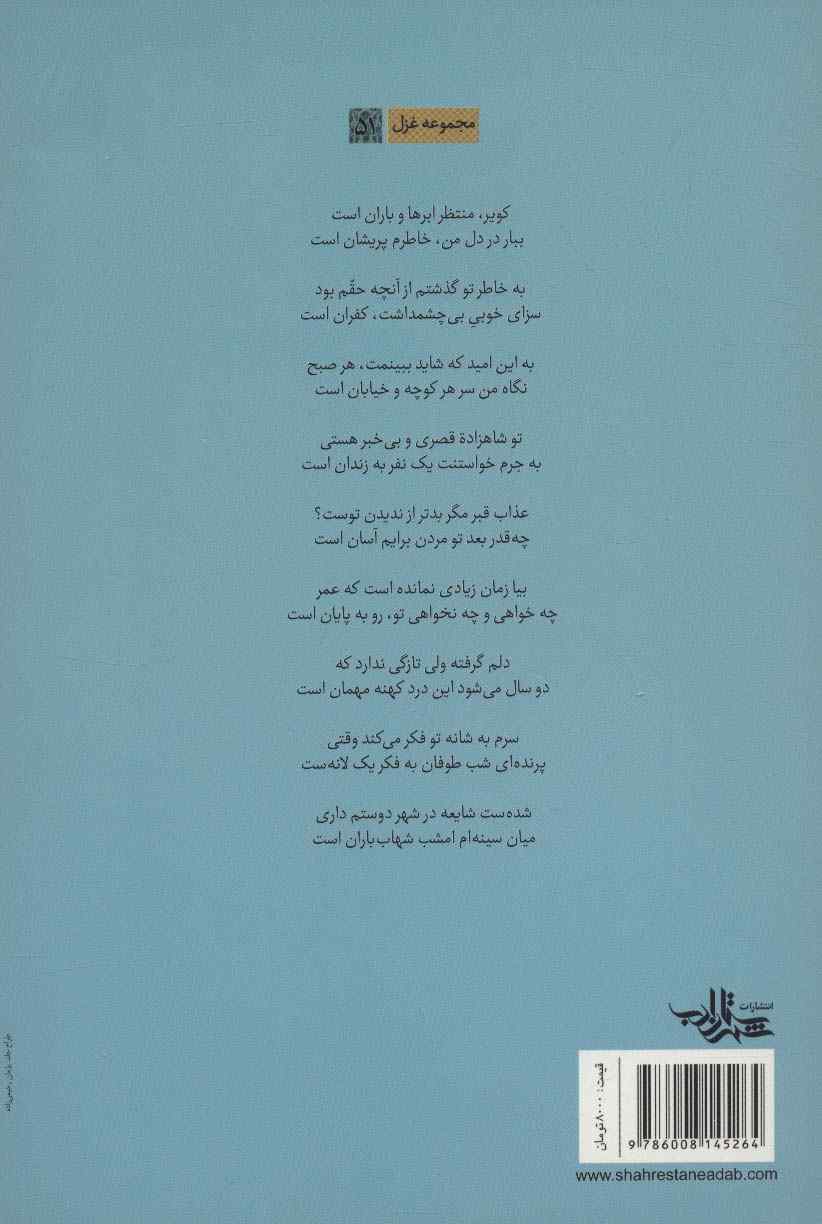 مجموعه غزل ۵۱
کویر، منتظر ابرها و باران است
ببار در دل من، خاطرم پریشان است
به خاطر تو گذشتم از آنچه حقّم بود
سزای خوبیِ بی‌چشمداشت، کفران است
به این امید که شاید ببینمت، هر صبح
نگاه من سر هر کوچه و خیابان است
تو شاهزادهٔ قصری و بی‌خبر هستی
به جرم خواستنت یک نفر به زندان است
عذاب قبر مگر بدتر از ندیدن توست؟
چه‌قدر بعد تو مردن برایم آسان است
بیا زمان زیادی نمانده است که عمر
چه خواهی و چه نخواهی تو، رو به پایان است
دلم گرفته ولی تازگی ندارد که
دو سال می‌شود این درد کهنه مهمان است
سرم به شانه تو فکر می‌کند وقتی
پرنده‌ای شب طوفان به فکر یک لانه‌ست
شده‌ست شایعه در شهر دوستم داری
میان سینه‌ام امشب شهاب‌باران است
انتشارات
شهرستان ادب
قیمت: ۸۰۰۰ تومان
9 786008 145264
www.shahrestaneadab.com
طراح جلد: